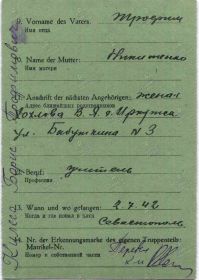 9. Vorname des Vaters. Трофим
Имя отца
10. Name der Mutter: Никитенко
Имя матери
11. Anschrift der nächsten Angehörigen: жена
Адрес ближайших родственников
В. А. г. Иркутск
ул. Бабушкина N 3
12. Beruf: учитель
Профессия
13. Wann und wo gefangen: 2.7.42
Когда и где попал в плен
Севастополь
14. Nr. der Erkennungsmarke des eigenen Truppenteils:
Matrikel-Nr.
Номер в собственной части:
Борис Трофимович